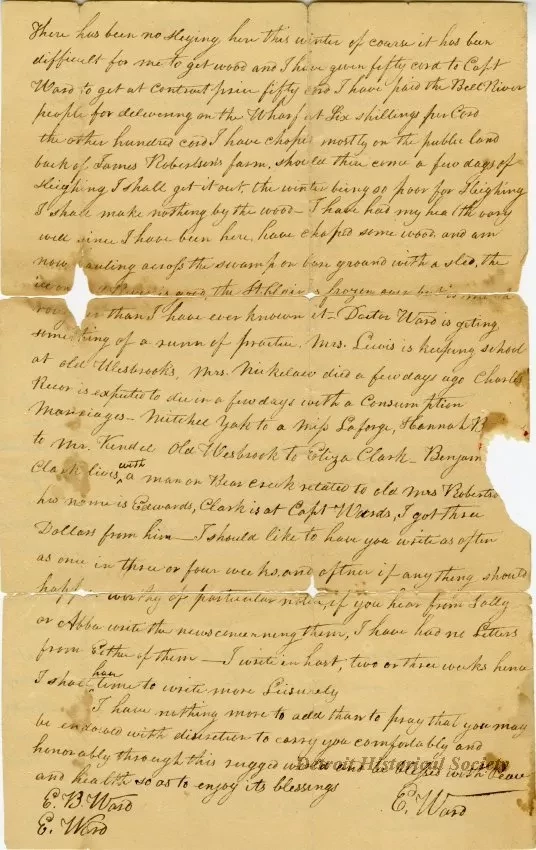 There has been no Sleying here this winter of course it has been
difficult for me to get wood and I have given fifty cord to Capt
Ward to get at contract price fifty cord I have paid the Bell River
people for delivering on the Wharf at Six shillings per Cord
the other hundred cord I have choped mostly on the public land
back of James Robertson's farm, should there come a few days of
Sleighing I shall get it out, the winter being so poor for Sleighing
I shall make nothing by the wood - I have had my health very
well since I have been here, have choped some wood and am
now hauting across the swamp on bare ground with a sled, the
ice on is good, the St Clair is frozen over
than I have ever known it - Doctor Ward is geting
something of a runn of practice. Mrs. Lewis is keeping school
at old Wesbrooks, Mrs. died a few days ago Charles
Recor is expected to die in a few days with a Consumption
Marriages - Mitchel Yak to a Miss Laforge, Hannah
to Mr. Kendel Old Wesbrook to Eliza Clark - Benjam
Clark lives with a man on Bear creek related to old Mrs Robertso
his name is Edwards, Clark is at Capt Wards, I got three
Dollars from him - I should like to have you write as often
as once in three or four weeks, and oftner if any thing should
worthy of particular notice, if you hear from Sally
or Abba write the news concerning them, I have had no Letters
from Either of them - I write in hast, two or three weeks hence
I shall have time to write more Leisurely
I have nothing more to add than to pray that you may
be endowed with discretion to carry you comfortably and
honorably through this rugged world and be blessed with Peace
and health so as to enjoy its blessings
E. B Ward E. Ward
E. Ward
Detroit Historical Society